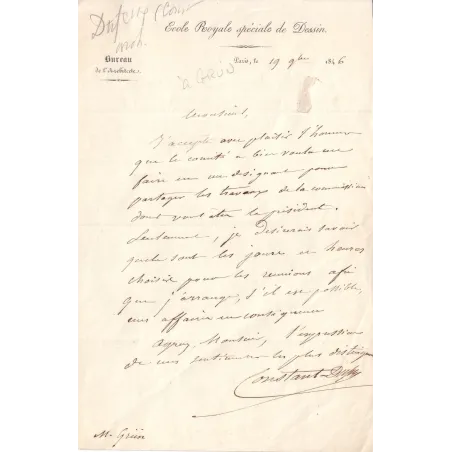 Ecole Royale spéciale de Dessin
Bureau
de l'Architecte
Paris, le 19 9bre 1846
à Paris
Monsieur,
J'accepte avec plaisir l'honneur
que le comité a bien voulu me
faire en me désignant pour
partager les travaux de la commission
dont vous êtes le président.
Seulement, je désirerais savoir
quels sont les jours et heures
choisis pour les réunions afin
que j'arrange, s'il est possible,
mes affaires en conséquence
Agréez, Monsieur, l'expression
de mes sentiments les plus distingués
Constant Dufeux
M. Grün